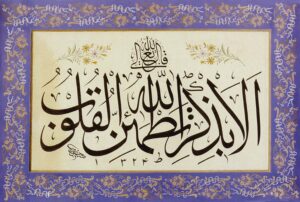 قال الله تعالى
الا بذكر الله تطمئن القلوب
١٣٢٤